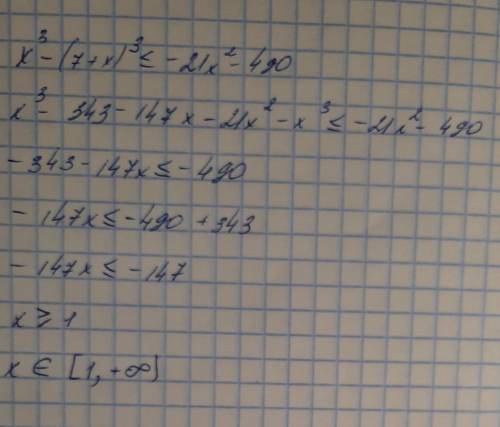 x³ - (7+x)³ ≤ -21x² - 490
x³ - 343 - 147x - 21x² - x³ ≤ -21x² - 490
-343 - 147x ≤ -490
- 147x ≤ -490 + 343
- 147x ≤ -147
x ≥ 1
x ∈ [1, +∞)